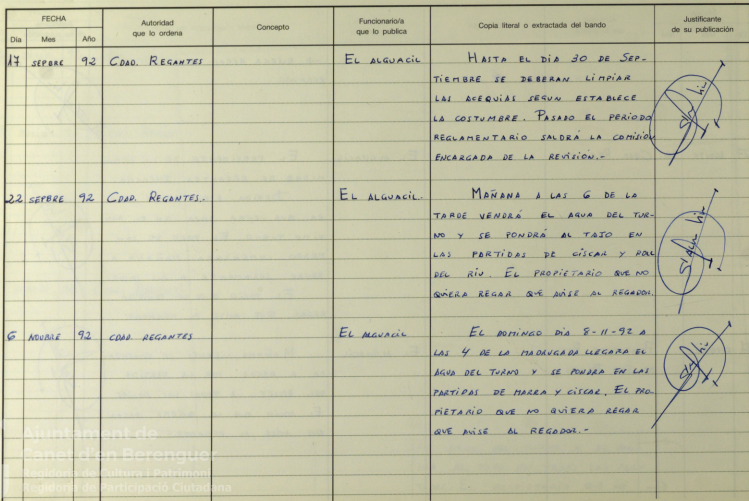 FECHA
Día Mes Año
Autoridad
que lo ordena
Concepto
Funcionario/a
que lo publica
Copia literal o extractada del bando
Justificante
de su publicación
17 SEPBRE 92 CDAD. REGANTES EL ALGUACIL HASTA EL DIA 30 DE SEP-
TIEMBRE SE DEBERAN LIMPIAR
LAS ACEQUIAS SEGUN ESTABLECE
LA COSTUMBRE. PASADO EL PERIODO
REGLAMENTARIO SALDRÁ LA COMISIÓN
ENCARGADA DE LA REVISIÓN.-
22 SEPBRE 92 CDAD. REGANTES.- EL ALGUACIL.- MAÑANA A LAS 6 DE LA
TARDE VENDRÁ EL AGUA DEL TUR-
NO Y SE PONDRÁ AL TAJO EN
LAS PARTIDAS DE CÍSCAR Y
DEL RIU. EL PROPIETARIO QUE NO
QUIERA REGAR QUE AVISE AL REGADOR.
6 NOVBRE 92 CDAD. REGANTES EL ALGUACIL EL DOMINGO DIA 8-11-92 A
LAS 4 DE LA MADRUGADA LLEGARA EL
AGUA DEL TURNO Y SE PONDRA EN LAS
PARTIDAS DE MARRA Y CISCAR. EL PRO-
PIETARIO QUE NO QUIERA REGAR
QUE AVISE AL REGADOR.-
Ajuntament de
Canet d'en Berenguer
Regidoria de Cultura i Patrimoni
Regidoria de Participació Ciutadana